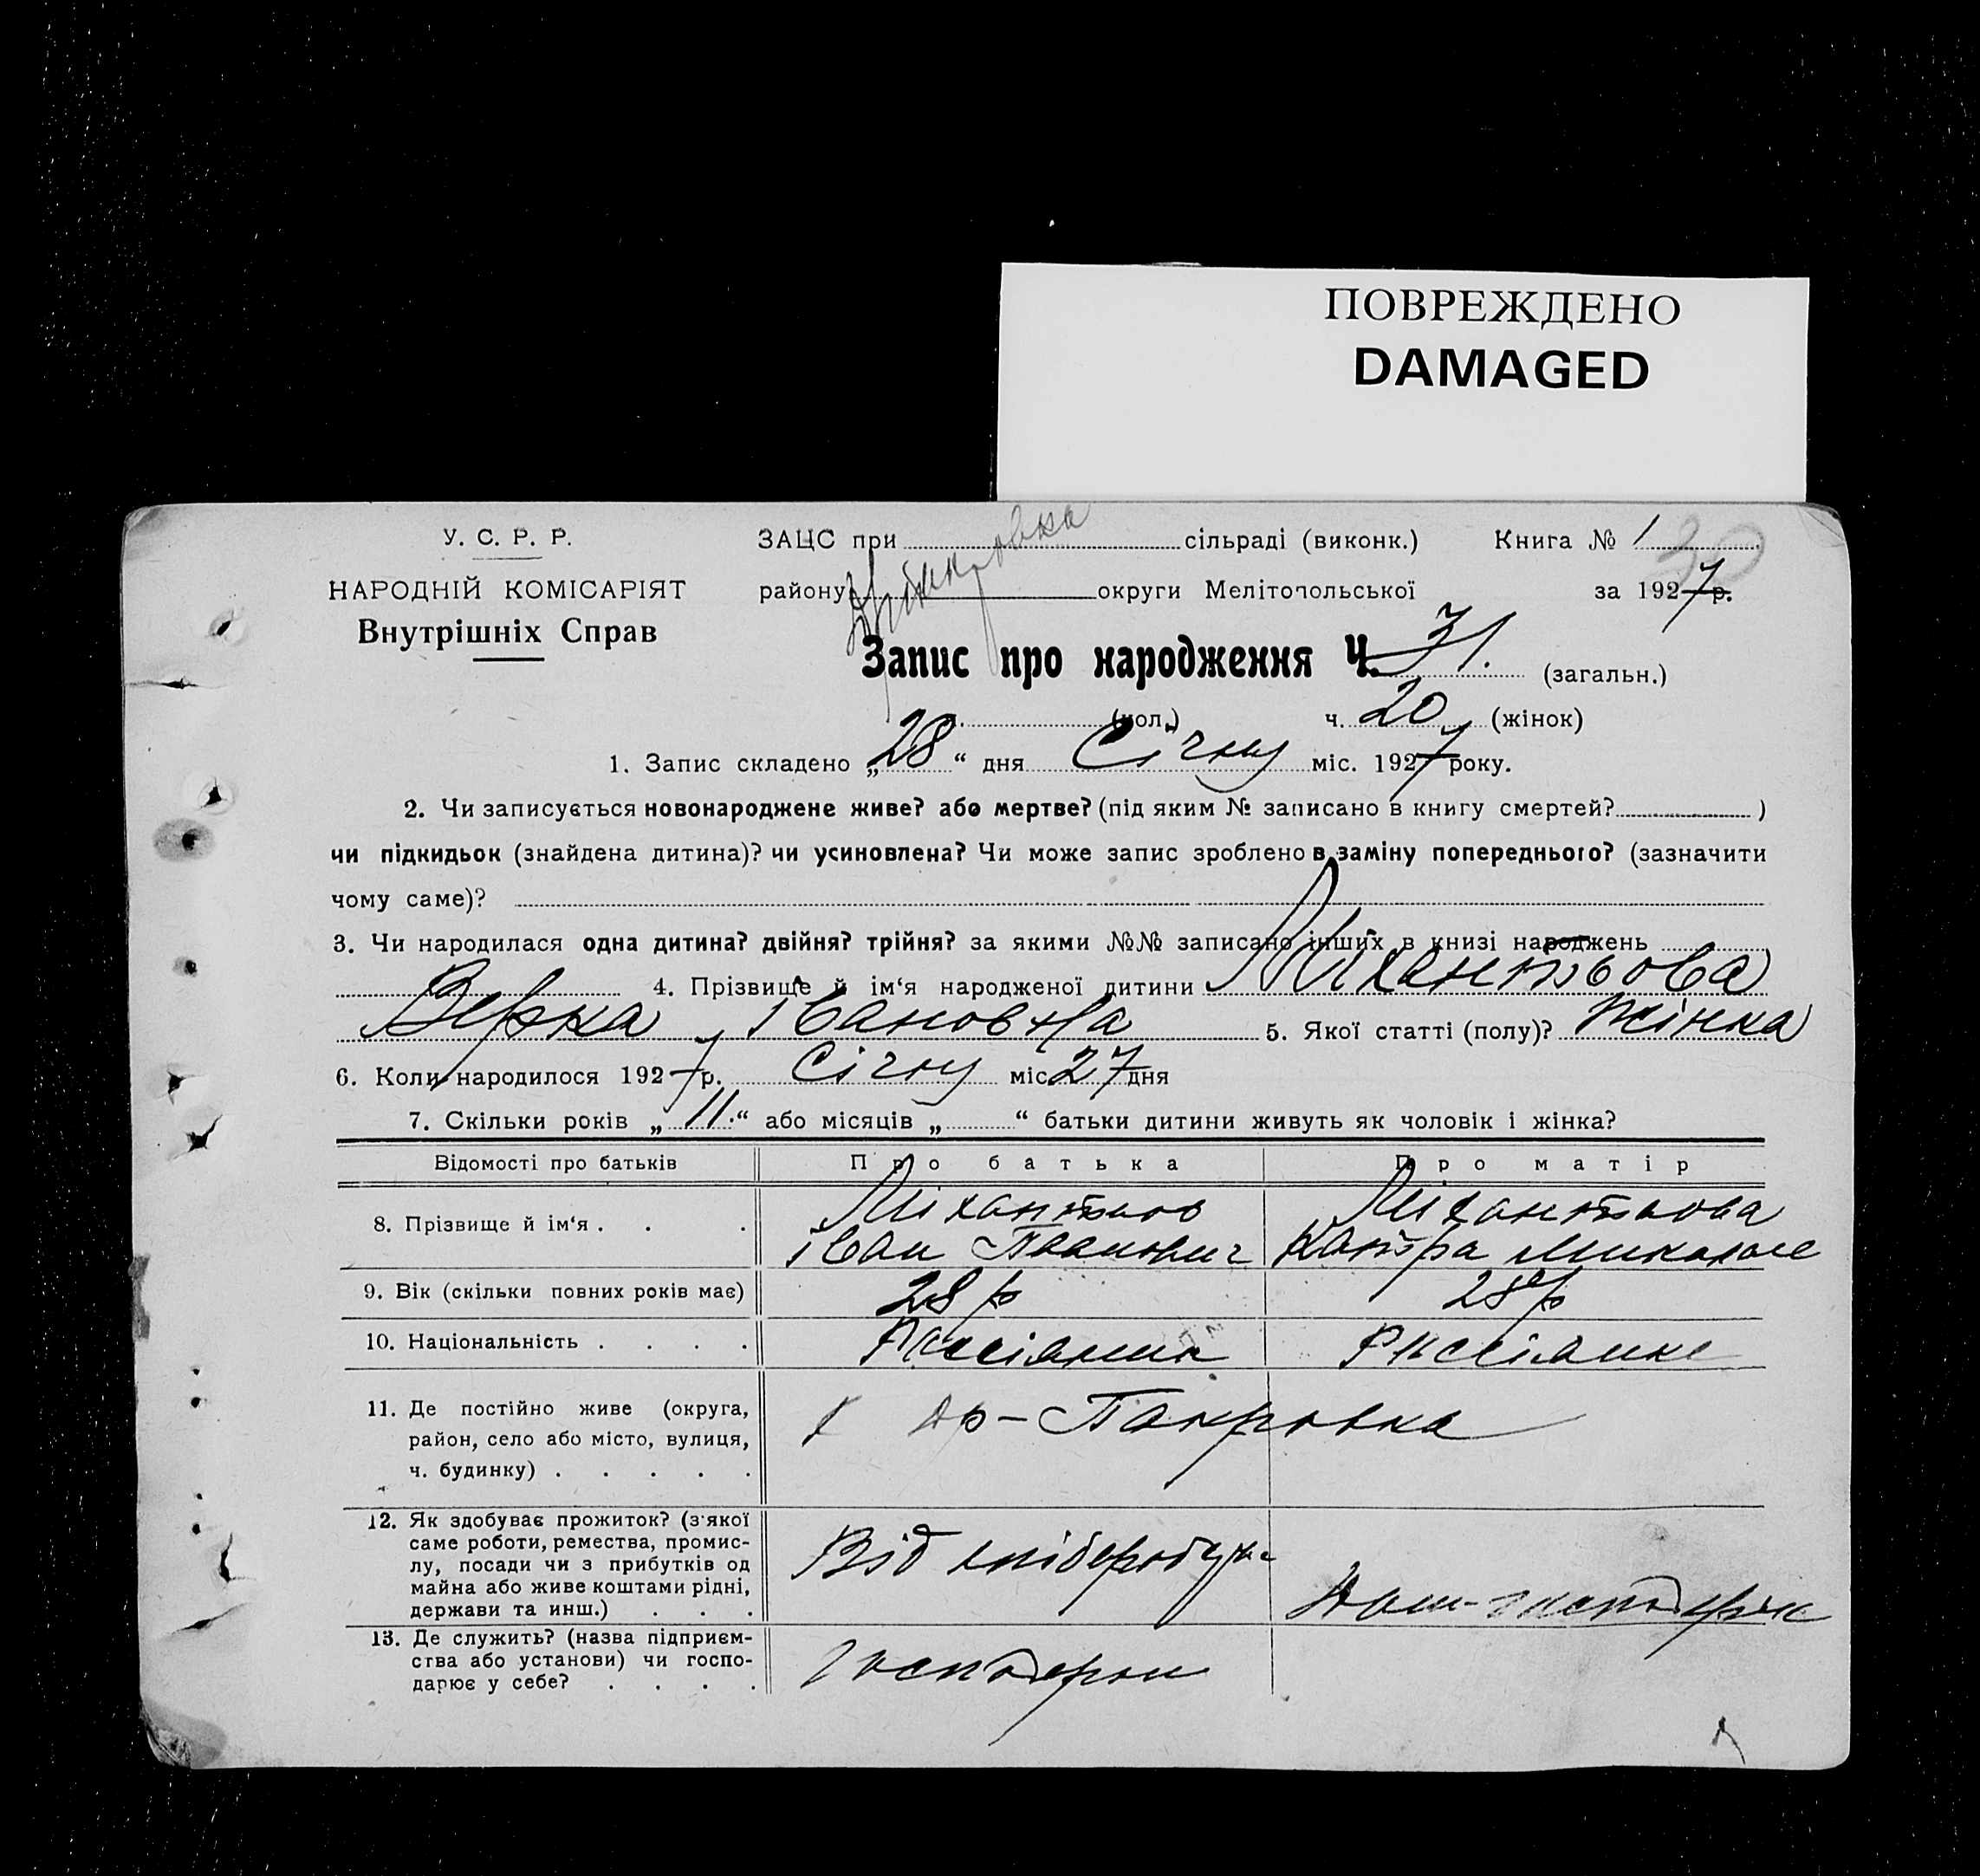 ПОВРЕЖДЕНО
DAMAGED
У. С. Р. Р.
НАРОДНІЙ КОМІСАРІЯТ
Внутрішніх Справ
ЗАЦС при сільраді (виконк.) Книга № 1
30
району округи Мелітопольської за 1927 р.
Запис про народження Ч. 31. (загальн.)
(чол.) ч. 20 (жінок)
1. Запис складено „28“ дня Січня міс. 1927 року.
2. Чи записується новонароджене живе? або мертве? (під яким № записано в книгу смертей? )
чи підкидьок (знайдена дитина)? чи усиновлена? Чи може запис зроблено в заміну попереднього? (зазначити
чому саме)?
3. Чи народилася одна дитина? двійня? трійня? за якими №№ записано інших в книзі народжень
4. Прізвище й ім‘я народженої дитини
Верка Івановна 5. Якої статті (полу)? Жінка
6. Коли народилося 1927 р. Січня міс. 27 дня
7. Скільки років „11.“ або місяців „ “ батьки дитини живуть як чоловік і жінка?
Відомості про батьків Про батька Про матір
8. Прізвище й ім‘я . . .
Іван
9. Вік (скільки повних років має) 28 р 28 р
10. Національність . . . .
11. Де постійно живе (округа,
район, село або місто, вулиця,
ч. будинку) . . . . .
12. Як здобуває прожиток? (з‘якої
саме роботи, ремества, промис-
лу, посади чи з прибутків од
майна або живе коштами рідні,
держави та инш.) . . .
Від
13. Де служить? (назва підприєм-
ства або установи) чи госпо-
дарює у себе? . . . .